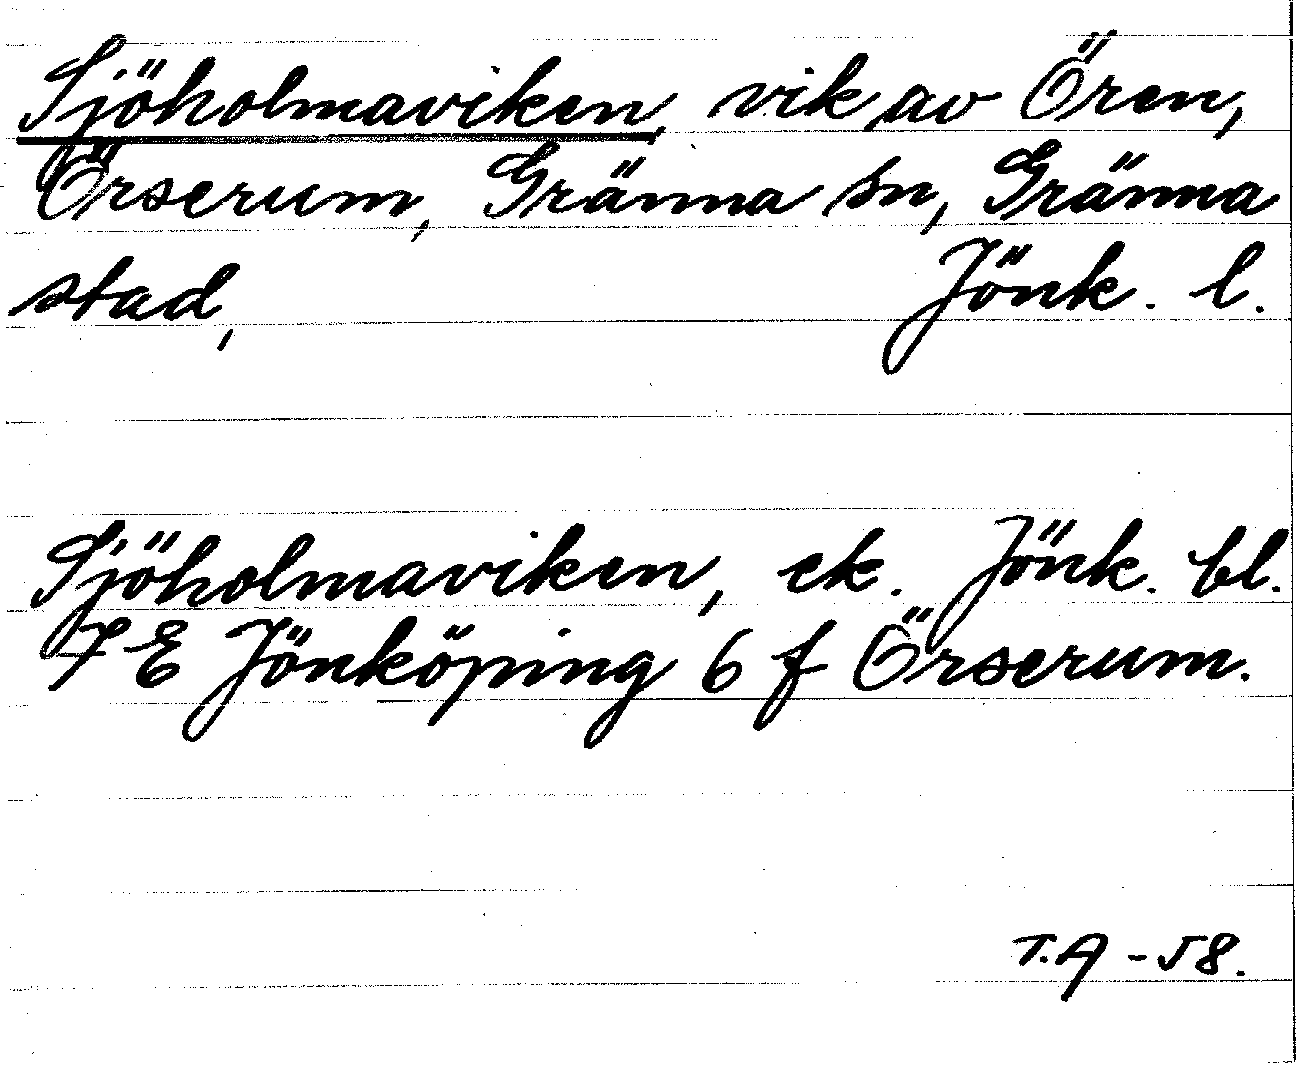 Sjöholmaviken, vik av Ören,
Örserum, Gränna sn, Gränna
stad, Jönk. l.
Sjöholmaviken, ek. Jönk. bl.
7 E Jönköping 6 f Örserum.
T.A -58.